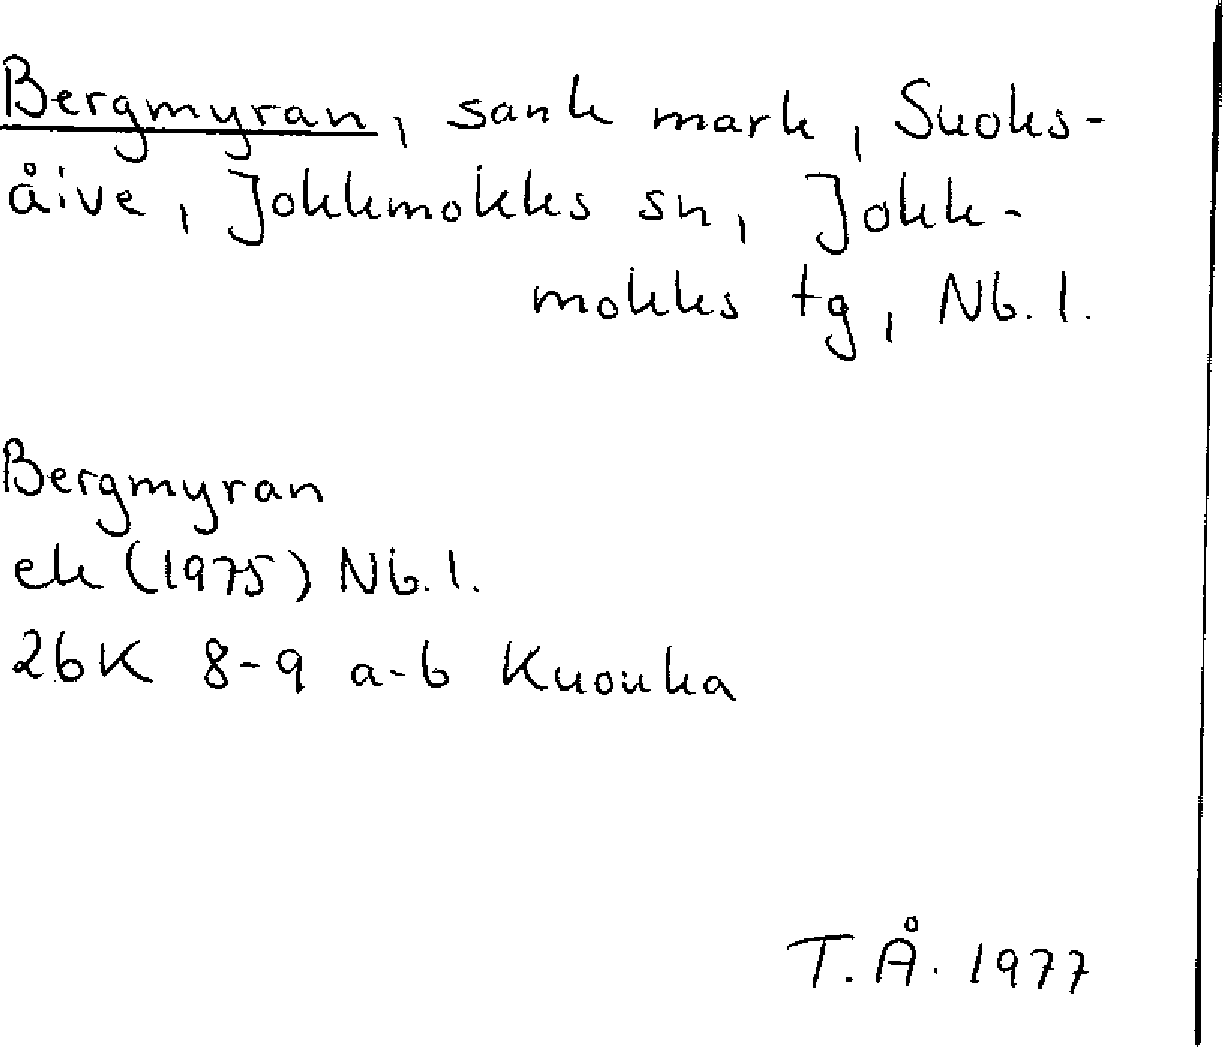 Bergmyran, sank mark, Suoks-
åive, Jokkmokks sn, Jokk-
mokks tg, Nb. l.
Bergmyran
ek (1975) Nb. l.
26K 8-9 a-b Kuouka
T. Å. 1977